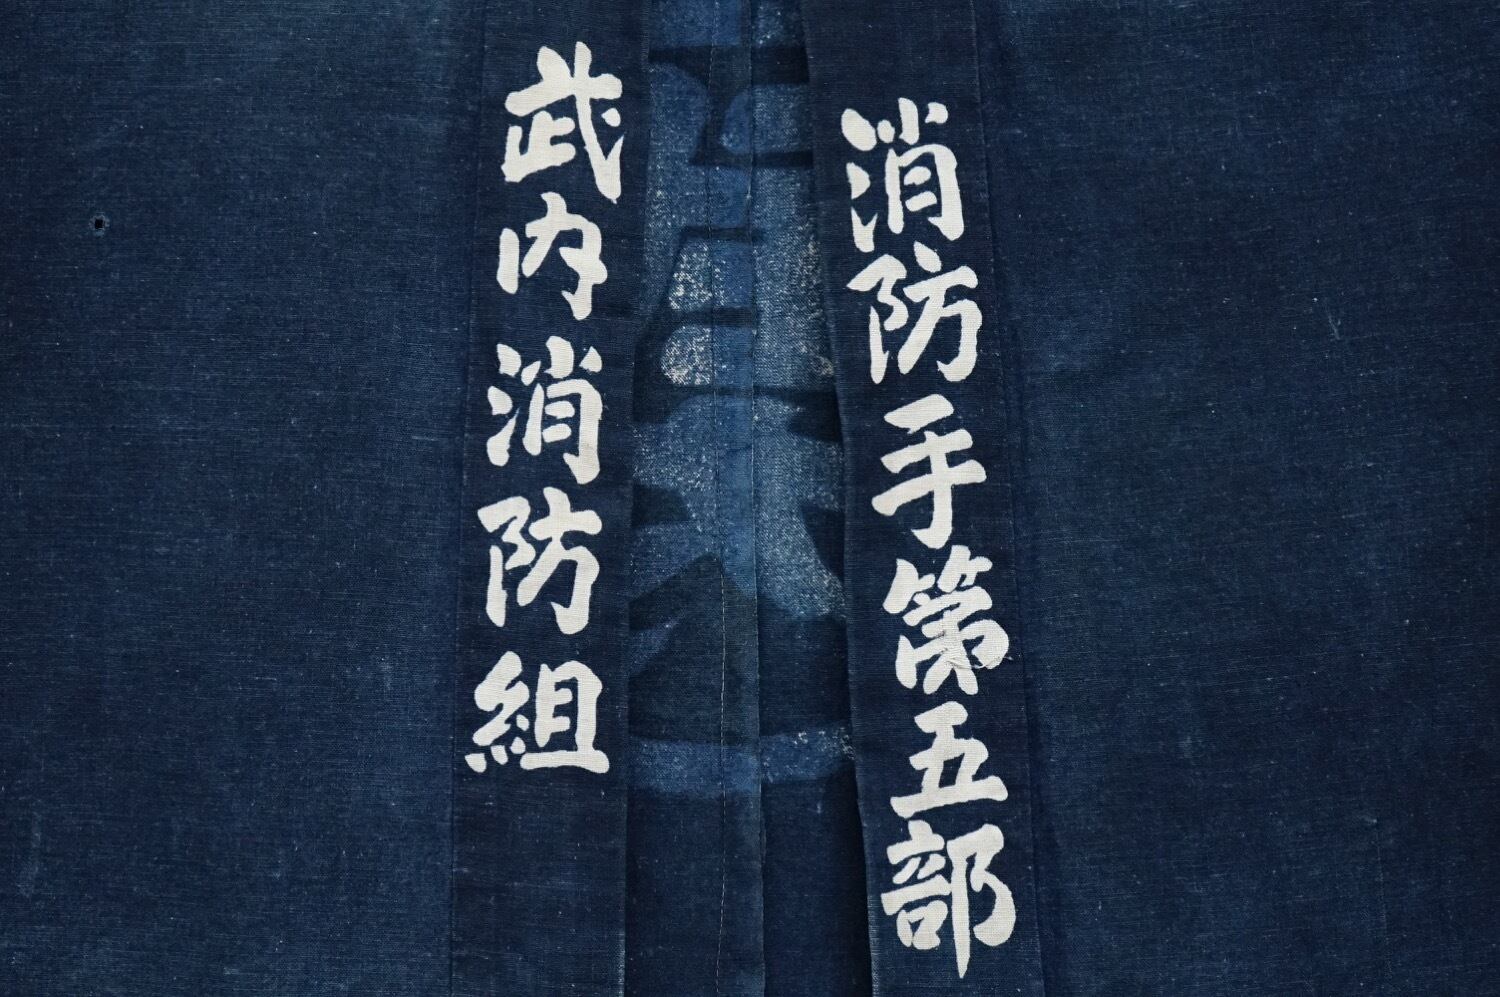 消防手第五部
武内消防組